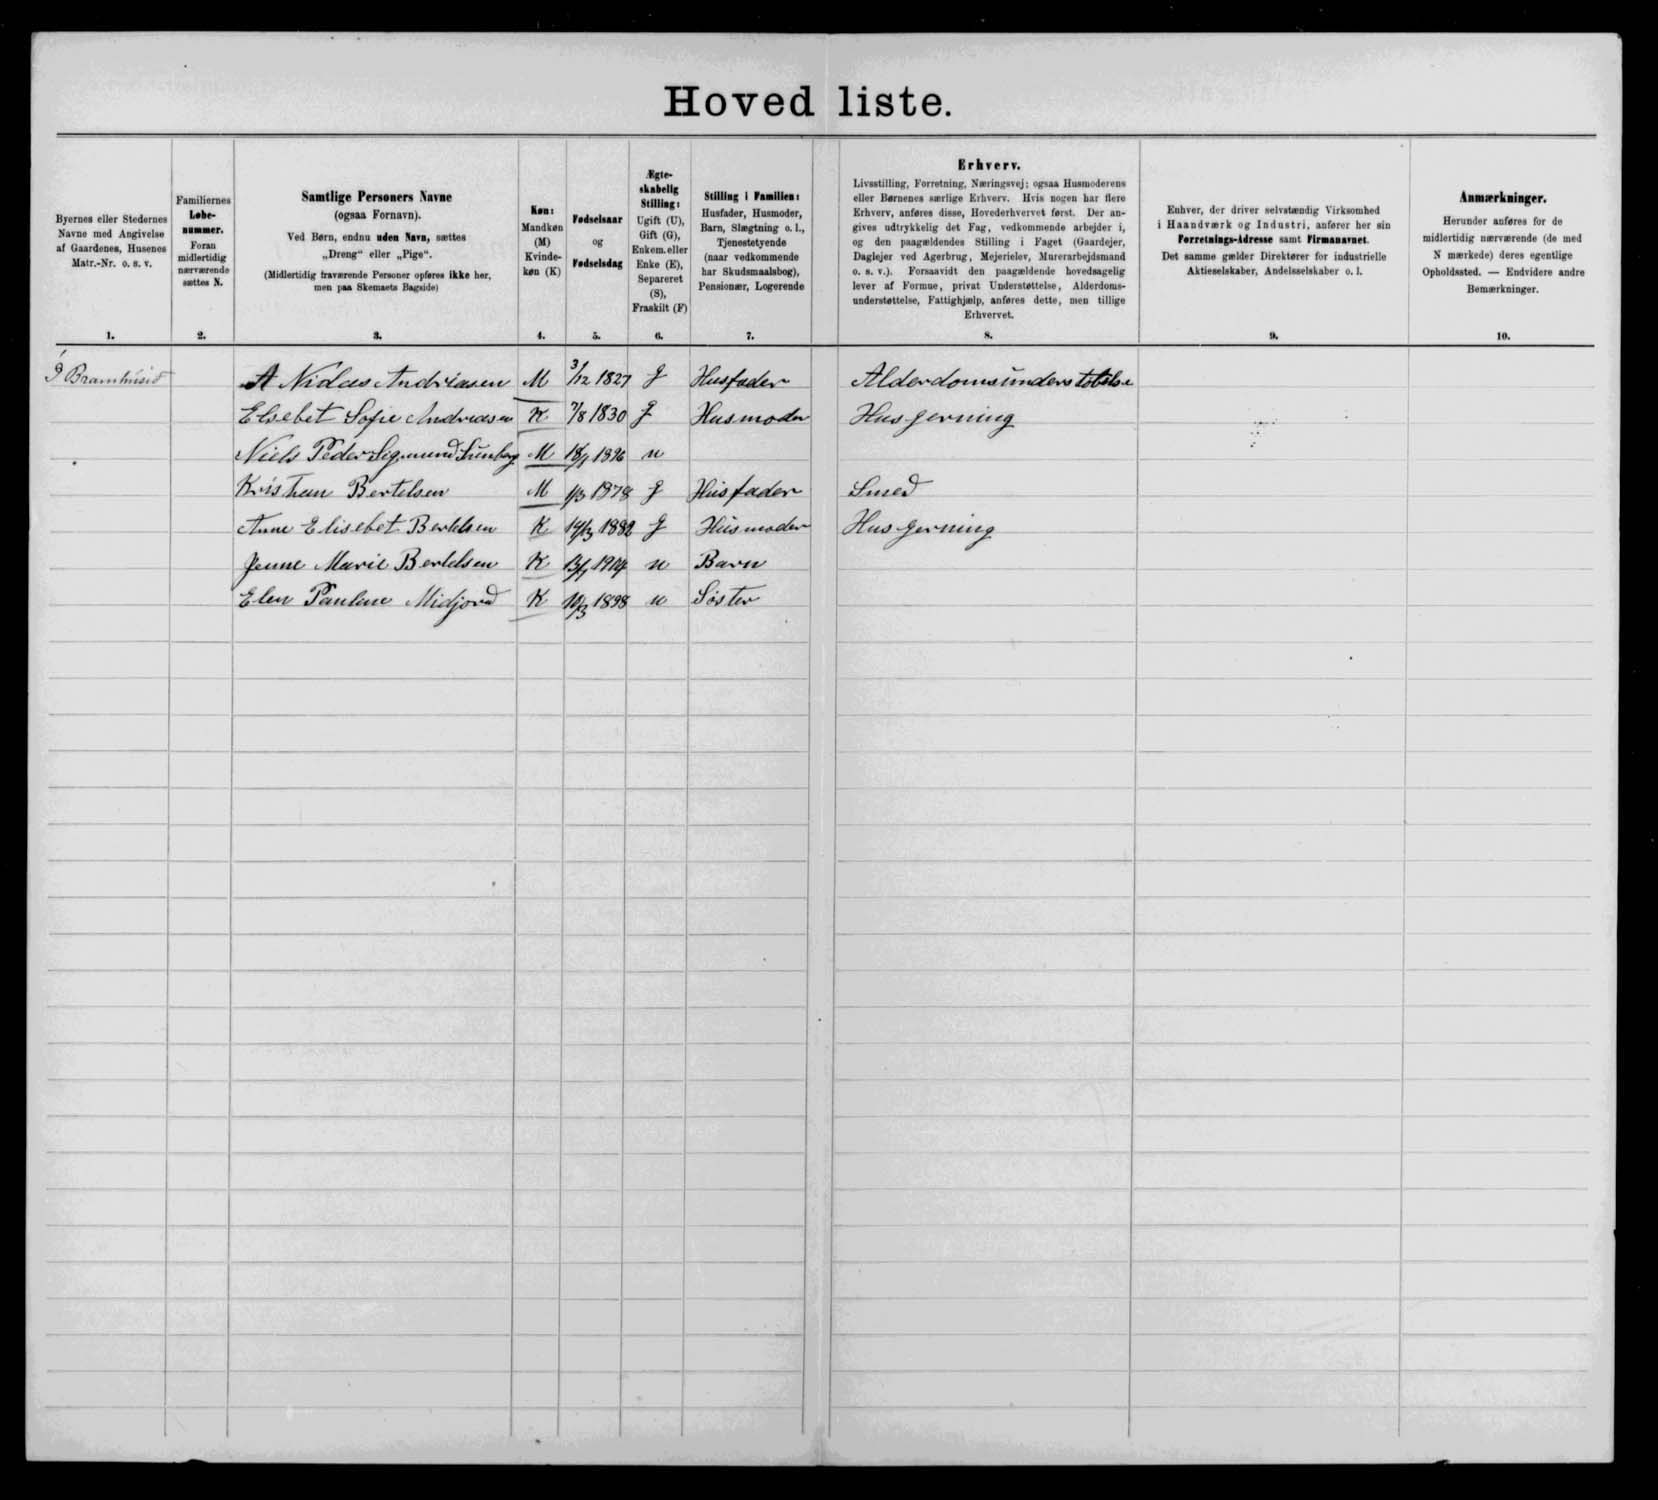 Hoved liste.
Byernes eller Stedernes
Navne med Angivelse
af Gaardenes, Husenes
Matr.-Nr. o. s. v.
1.
Familiernes
Løbe-
nummer.
Foran
midlertidig
nærværende
sættes N.
2.
Samtlige Personers Navne
(ogsaa Fornavn).
Ved Børn, endnu uden Navn, sættes
„Dreng“ eller „Pige“.
(Midlertidig fraværende Personer opføres ikke her,
men paa Skemaets Bagside)
3.
Køn:
Mandkøn
(M)
Kvinde-
køn (K)
4.
Fødselsaar
og
Fødselsdag
5.
Ægte-
skabelig
Stilling:
Ugift (U),
Gift (G),
Enkem. eller
Enke (E),
Separeret
(S),
Fraskilt (F)
6.
Stilling i Familien:
Husfader, Husmoder,
Barn, Slægtning o. l.,
Tjenestetyende
(naar vedkommende
har Skudsmaalsbog),
Pensionær, Logerende
7.
Erhverv.
Livsstilling, Forretning, Næringsvej; ogsaa Husmoderens
eller Børnenes særlige Erhverv. Hvis nogen har flere
Erhverv, anføres disse, Hovederhvervet først. Der an-
gives udtrykkelig det Fag, vedkommende arbejder i,
og den paagældendes Stilling i Faget (Gaardejer,
Daglejer ved Agerbrug, Mejerielev, Murerarbejdsmand
o. s. v.). Forsaavidt den paagældende hovedsagelig
lever af Formue, privat Understøttelse, Alderdoms-
understøttelse, Fattighjælp, anføres dette, men tillige
Erhvervet.
8.
Enhver, der driver selvstændig Virksomhed
i Haandværk og Industri, anfører her sin
Forretnings-Adresse samt Firmanavnet.
Det samme gælder Direktører for industrielle
Aktieselskaber, Andelsselskaber o. l.
9.
Anmærkninger.
Herunder anføres for de
midlertidig nærværende (de med
N mærkede) deres egentlige
Opholdssted. — Endvidere andre
Bemærkninger.
10.
Andriasen M 3/12 1827 G Husfader Alderdomsunderstøtelse
Elsebet Sofie Andriasen K 7/8 1830 G Husmoder Husgerning
Niels Peder Sigmund M 1896 u
Kristian Bertelsen M 1/3 1878 G Husfader Smed
Anne Elisebet Bertelsen K 1882 G Husmoder Husgerning
Marie Bertelsen K u Barn
Elen Pauline Midjord K 1898 u Søster